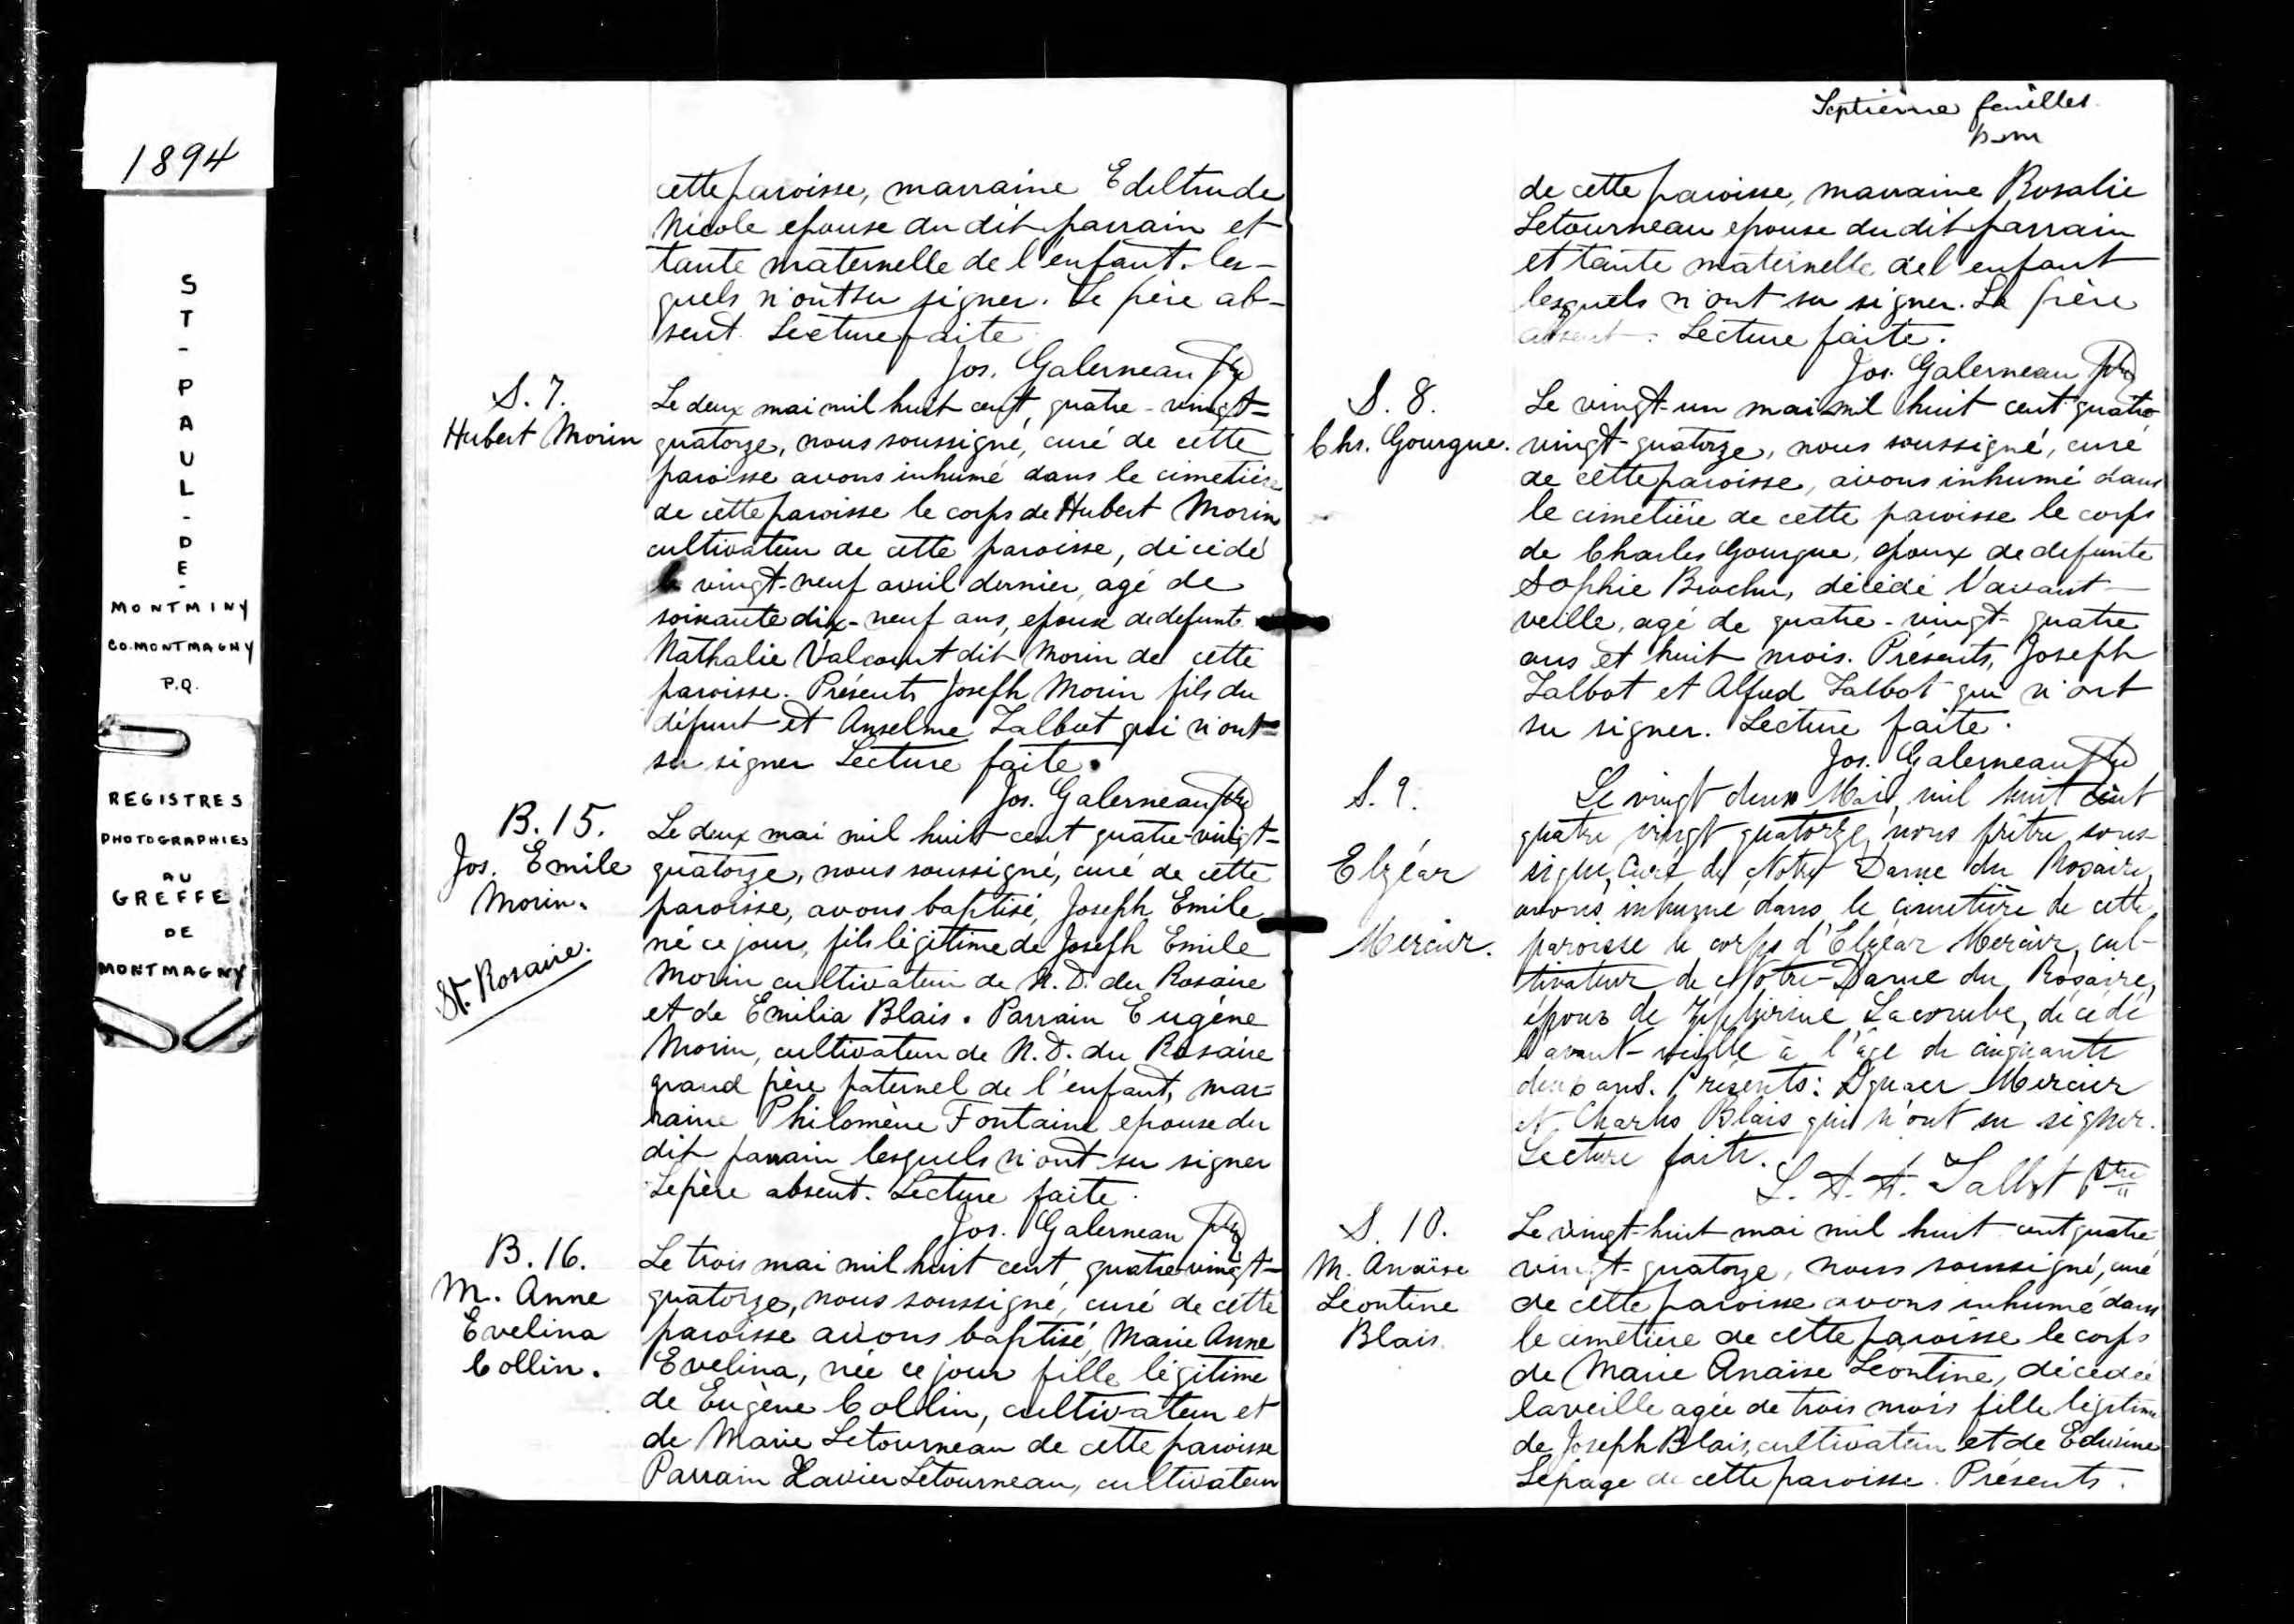 1894
ST-PAUL-DE-
MONTMINY
CO. MONTMAGNY
P.Q.
REGISTRES
PHOTOGRAPHIES
AU
GREFFE
DE
MONTMAGNY
cette paroisse, marraine Edeltrude
Nicole epouse du dit parrain et
tante maternelle de l'enfant. les-
quels n'ont su signer. Le père ab-
sent. Lecture faite
Jos. Galerneau Ptre
S. 7.
Hubert Morin
Le deux mai mil huit cent, quatre-vingt-
quatorze, nous soussigné, curé de cette
paroisse avons inhumé dans le cimetière
de cette paroisse le corps de Hubert Morin
cultivateur de cette paroisse, décédé
le vingt-neuf avril dernier, agé de
soixante dix-neuf ans, epoux de defunte
Nathalie Valcourt dit Morin de cette
paroisse. Présents Joseph Morin fils du
défunt et Anselme Talbot qui n'ont
su signer Lecture faite.
Jos. Galerneau Ptre
B. 15.
Jos. Emile
Morin.
St. Rosaire.
Le deux mai mil huit-cent quatre-vingt-
quatorze, nous soussigné, curé de cette
paroisse, avons baptisé, Joseph Emile
né ce jour, fils légitime de Joseph Emile
Morin cultivateur de N. D. du Rosaire
et de Emilia Blais. Parrain Eugène
Morin, cultivateur de N. D. du Rosaire
grand père paternel de l'enfant, mar-
raine Philomène Fontaine epouse du
dit parrain lesquels n'ont su signer
Le père absent. Lecture faite.
Jos. Galerneau Ptre
B. 16.
M. Anne
Evelina
Collin.
Le trois mai mil huit cent, quatre vingt-
quatorze, nous soussigné, curé de cette
paroisse avons baptisé, Marie Anne
Evelina, née ce jour fille légitime
de Eugène Collin, cultivateur et
de Marie Letourneau de cette paroisse
Parrain Xavier Letourneau, cultivateur
Septième feuillet
de cette paroisse, marraine Rosalie
Letourneau epouse du dit parrain
et tante maternelle de l'enfant
lesquels n'ont su signer. Le père
absent. Lecture faite.
Jos. Galerneau Ptre
S. 8.
Chs. Gourgue.
Le vingt-un mai mil huit cent quatre
vingt-quatorze, nous soussigné, curé
de cette paroisse, avons inhumé dans
le cimetière de cette paroisse le corps
de Charles Gourgue, epoux de defunte
Sophie Brochu, décédé l'avant-
veille, agé de quatre-vingt-quatre
ans et huit mois. Présents, Joseph
Talbot et Alfred Talbot qui n'ont
su signer. Lecture faite.
Jos. Galerneau Ptre
S. 9.
Elzéar
Mercier.
Le vingt deux Mai, mil huit cent
quatre vingt quatorze, nous prêtre sous-
signé, Curé de Notre Dame du Rosaire,
avons inhumé dans le cimetière de cette
paroisse le corps d'Elzéar Mercier, cul-
tivateur de Notre-Dame du Rosaire,
époux de Zépherine Lacombe, décédé
l'avant-veille à l'âge de cinquante
deux ans. Présents: Ignace Mercier
et Charles Blais qui n'ont su signer.
Lecture faite.
L. A. A. Talbot Ptre
S. 10.
M. Anaïse
Léontine
Blais.
Le vingt-huit mai mil huit cent quatre
vingt-quatorze, nous soussigné, curé
de cette paroisse avons inhumé dans
le cimetière de cette paroisse le corps
de Marie Anaïse Léontine, décédée
la veille agée de trois mois fille légitime
de Joseph Blais, cultivateur et de Edwine
Lepage de cette paroisse. Présents.